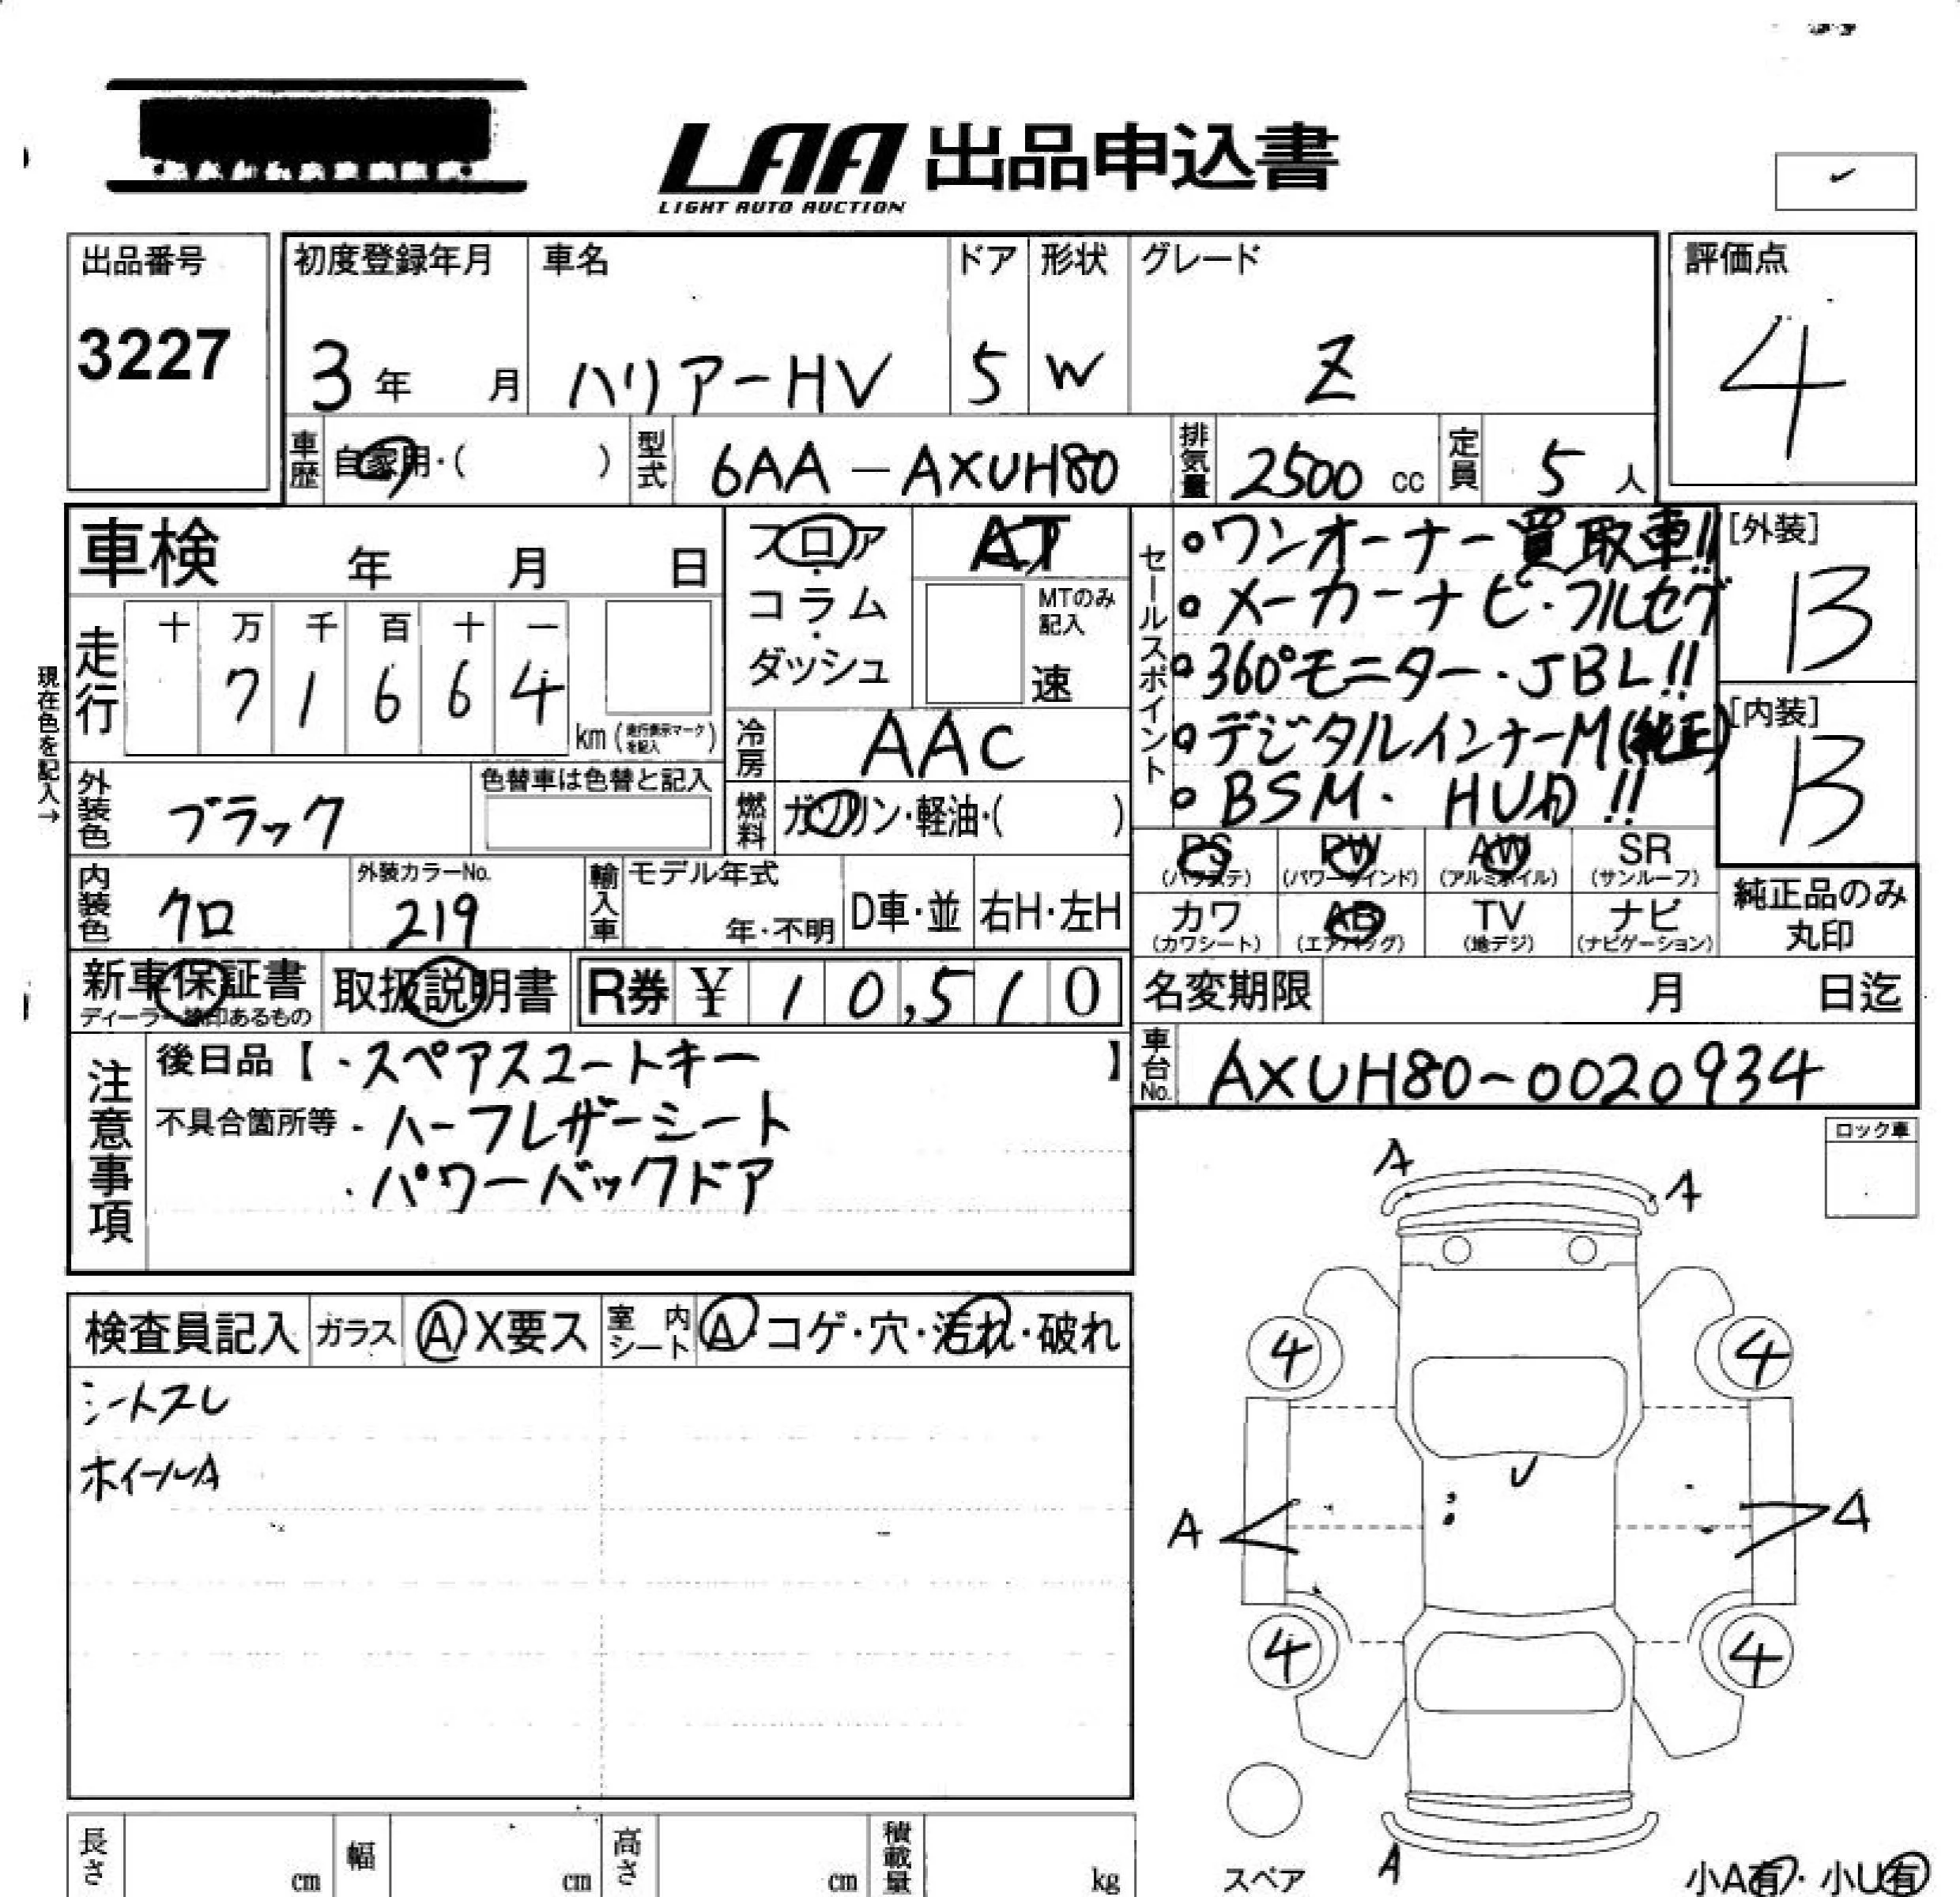 LAA 出品申込書
LIGHT AUTO AUCTION
出品番号
3227
初度登録年月
3年 月
車名
ハリアーHV
ドア
5
形状
W
グレード
Z
評価点
4
車歴
自家用・( )
型式
6AA-AXUH80
排気量
2500 cc
定員
5 人
車検 年 月 日
フロア・コラム・ダッシュ
AT
MTのみ記入
速
セールスポイント
・ワンオーナー買取車!!
・メーカーナビ・フルセグ
・360°モニター・JBL!!
・デジタルインナーM(純正)
・BSM・HUD!!
[外装]
B
[内装]
B
現在色を記入→
走行
十 万 千 百 十 一
7 1 6 6 4
km(走行表示マークを記入)
冷房
AAC
外装色
ブラック
色替車は色替と記入
燃料
ガソリン・軽油・( )
PS
(パワステ)
PW
(パワーウインド)
AW
(アルミホイル)
SR
(サンルーフ)
カワ
(カワシート)
AB
(エアバッグ)
TV
(地デジ)
ナビ
(ナビゲーション)
純正品のみ
丸印
内装色
クロ
外装カラーNo.
219
輸入車
モデル年式
年・不明
D車・並
右H・左H
新車保証書
ディーラー捺印あるもの
取扱説明書
R券 ¥ 10,510
名変期限 月 日迄
車台No.
AXUH80-0020934
注意事項
後日品【・スペアスマートキー】
不具合箇所等・ハーフレザーシート
・パワーバックドア
ロック車
検査員記入
ガラス
A X要ス
室内シート
A・コゲ・穴・汚れ・破れ
シートスレ
ホイールA
A
A
4
4
U
A
A
4
4
A
スペア
小A有・小U有
長さ cm
幅 cm
高さ cm
積載量 kg